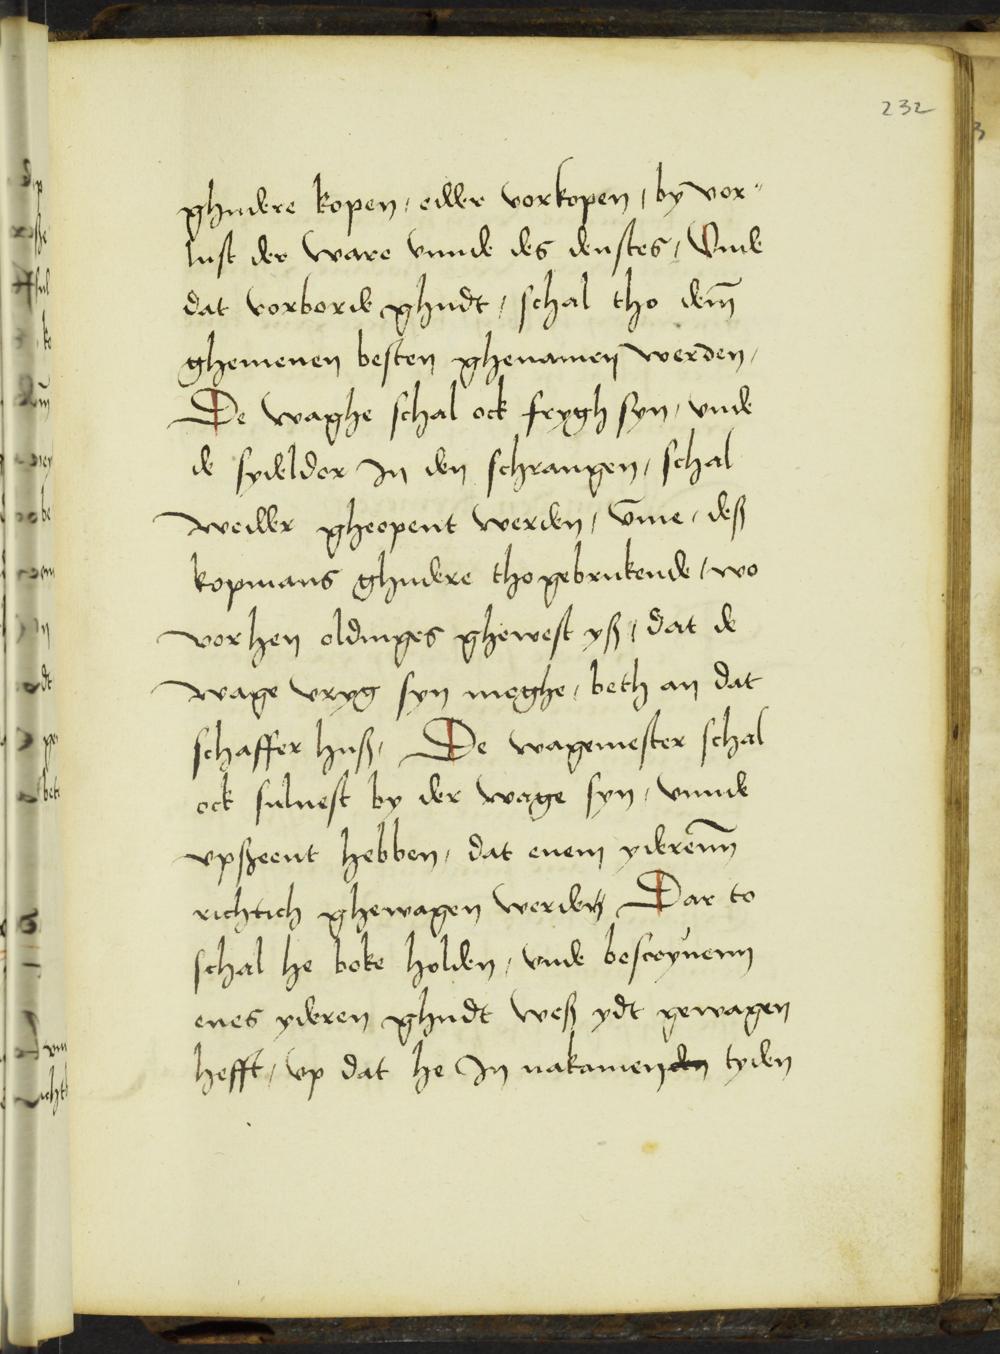 232
ghudere kopen / edder vorkopen / by vor-
lust der ware vnnde des denstes / Vnde
dat vorborde ghudt / schal tho dem̄
ghemenen besten ghenamen werden /
De waghe schal ock frygh syn / vnde
de sydeldor In den schrangen / schal
wedder gheopent werden / vm̄e / deß
kopmans ghudere tho gebrukende / wo
vorhen oldinges ghewest yß / dat de
wage vryg syn moghe / beth an dat
schaffer huß / De wagemester schal
ock sulnest by der wage syn / vnnde
vpßeent hebben / dat enem yderenn
richtich ghewagen werden Dar to
schal he boke holden / vnde bescryuenn
enes yderen ghudt weß ydt gewagen
hefft / vp dat he In nakamenden tyden